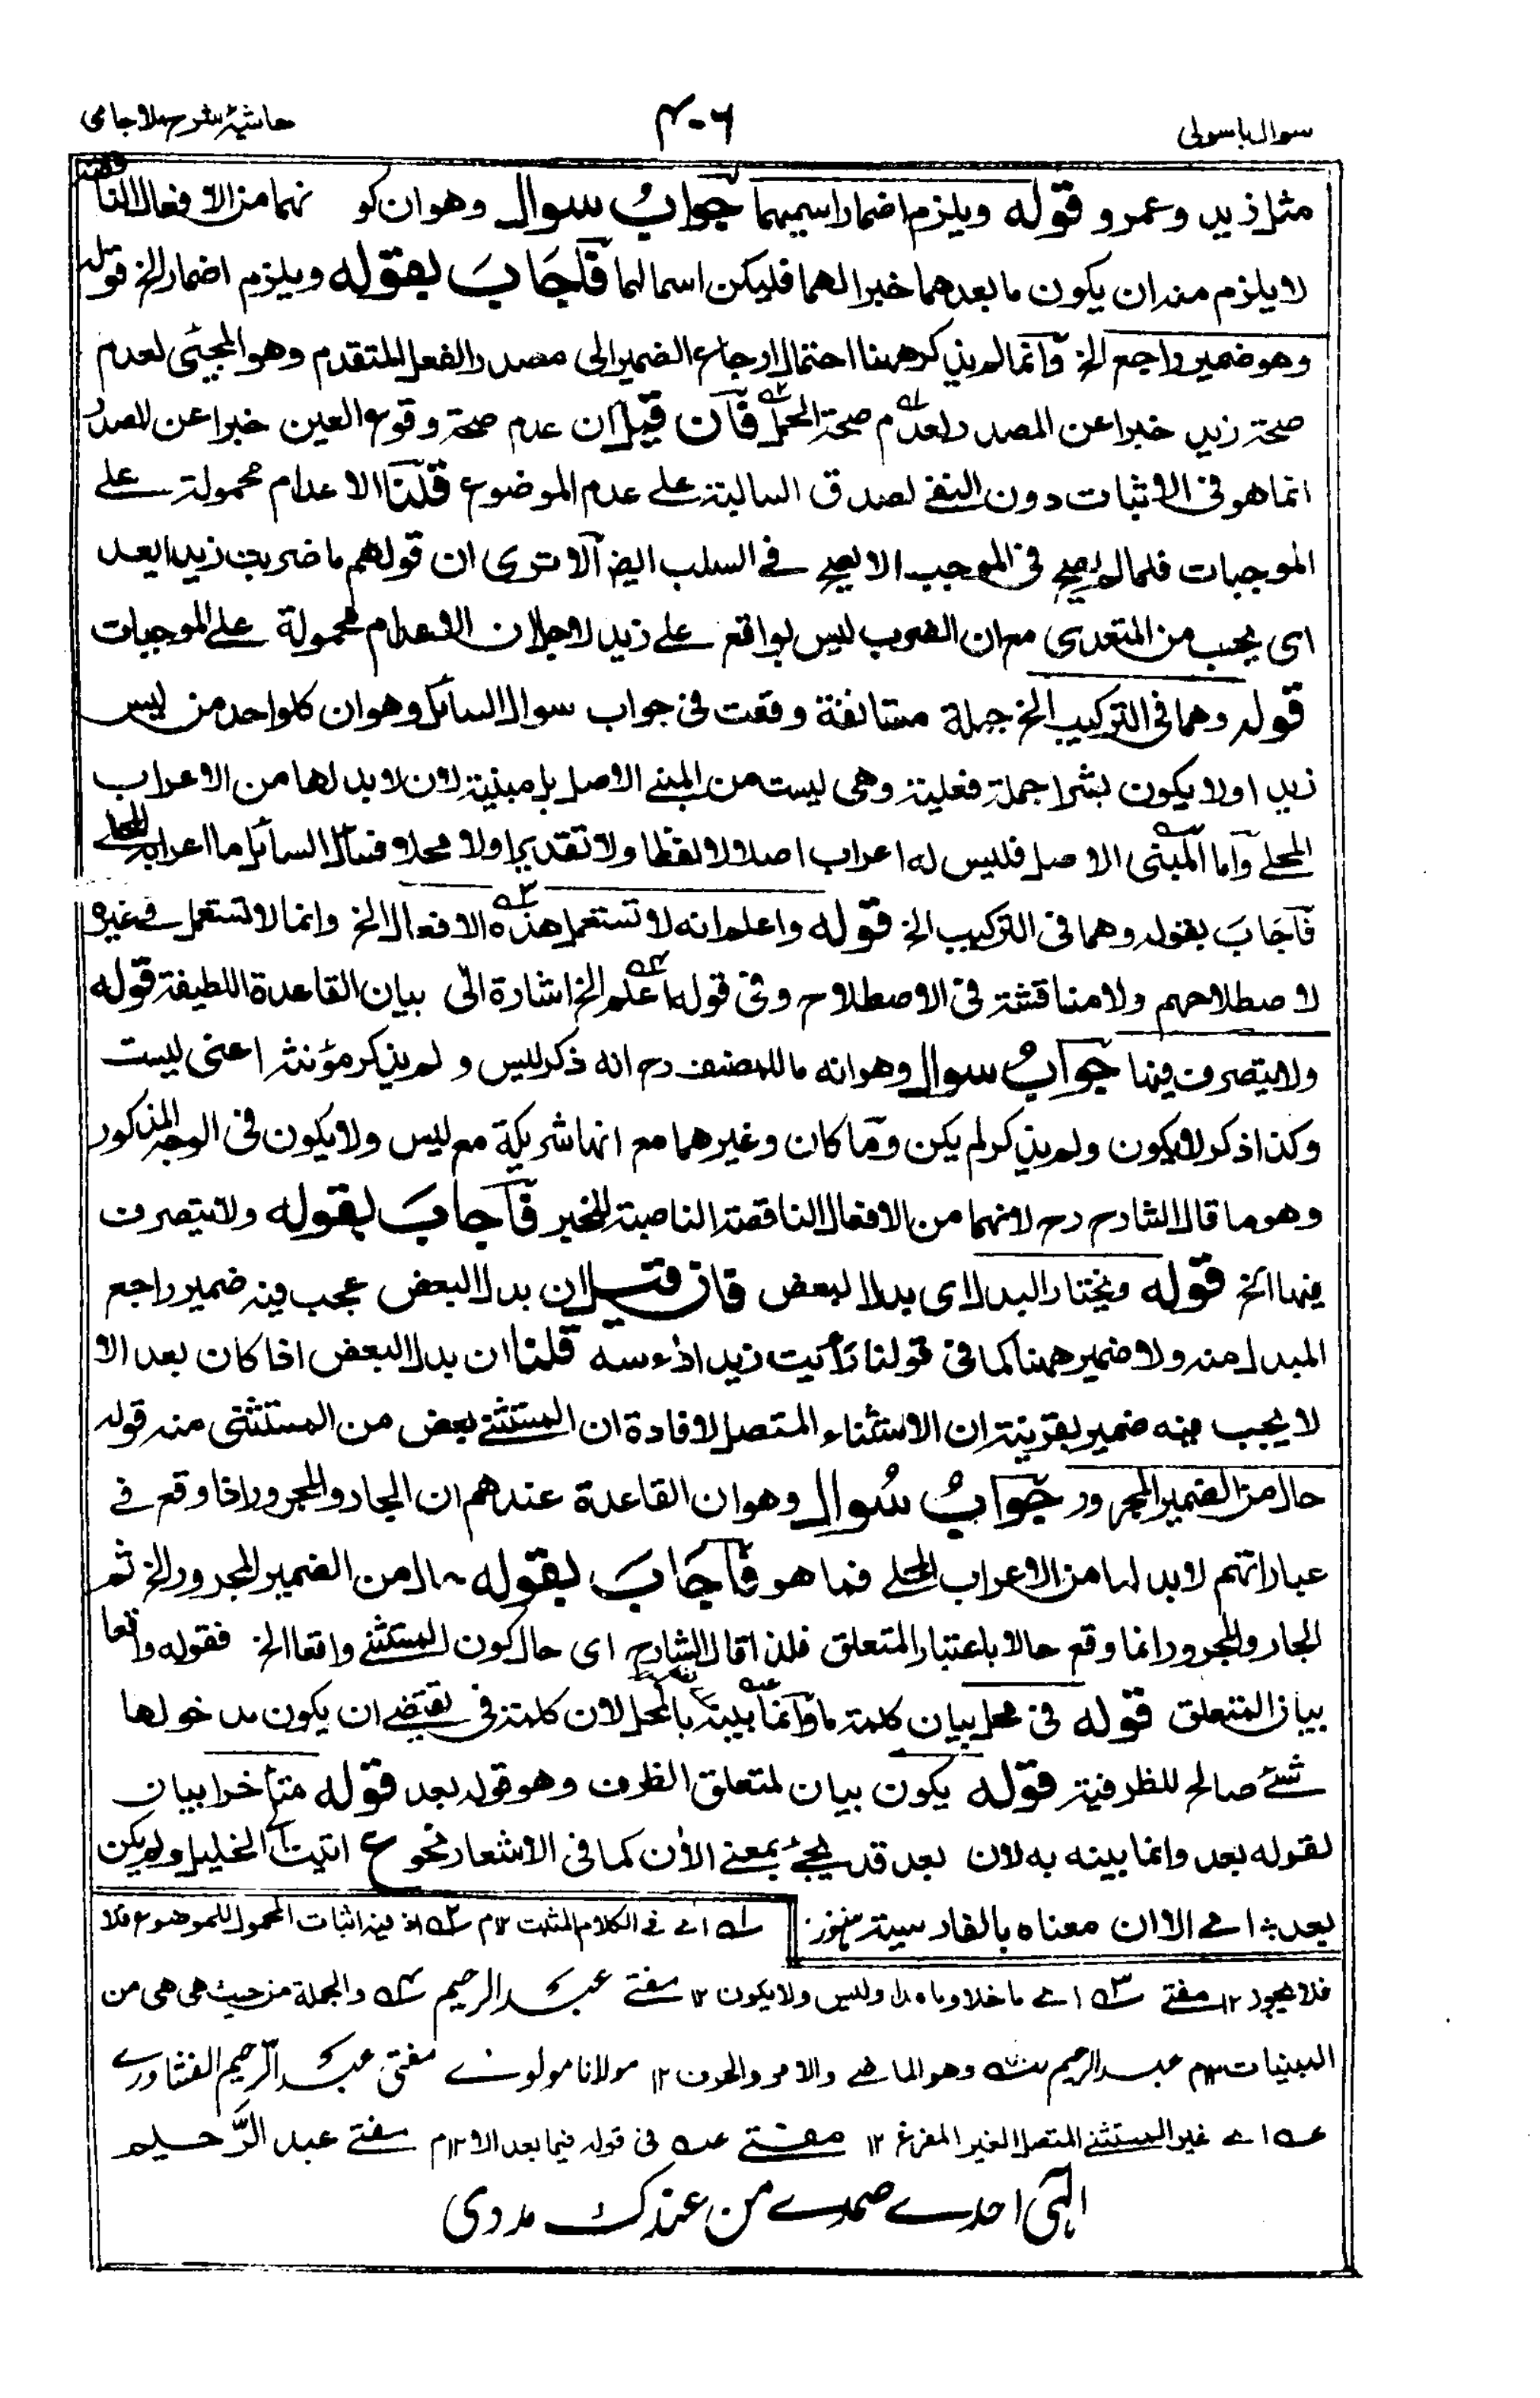 سوال باسولی ۴۰۶ حاشیۂ شرح ملا جامی
مثل زيد وعمرو قوله ويلزم اضمار اسميهما جواب سوال وهو ان كونهما من الافعال الناقصة
لا يلزم منه ان يكون ما بعدهما خبرا لهما فليكن اسما لهما فاجاب بقوله ويلزم اضمار الخ قوله
وهو ضمير راجع الخ وانما لم يذكر ههنا احتمال ارجاع الضمير الى مصدر الفعل المتقدم وهو المجئى لعدم
صحة زيد خبرا عن المصدر لعدم صحة الحمل فان قيل ان عدم صحة وقوع العين خبرا عن المصدر
انما هو فى الاثبات دون النفے لصدق السالبة علے عدم الموضوع قلنا الاعدام محمولة علے
الموجبات فلما لم يصح فى الموجب لا يصح فے السلب ايض الا ترى ان قولهم ما ضربت زيدا يعد
اى يحسب من المتعدى مع ان الضرب ليس بواقع علے زيد لاجل ان الاعدام محمولة علے الموجبات
قوله وهما فى التركيب الخ جملة مستانفة وقعت فى جواب سوال السائل وهو ان كلواحد من ليس
زيدا ولا يكون بشرا جملة فعلية وهى ليست من المبنے الاصل بل مبنية لان لا بد لها من الاعراب
المحلے واما المبنى الاصل فليس له اعراب اصلا لا لفظا ولا تقديرا ولا محلا فسأل السائل ما اعرابه المحلے
فاجاب بقوله وهما فى التركيب الخ قوله واعلم انه لا تستعمل هذه الافعال الخ وانما لا تستعمل فے غيره
لاصطلاحهم ولا مناقشة فى الاصطلاح وفى قوله اعلم الخ اشارة الى بيان القاعدة اللطيفة قوله
ولا يتصرف فيها جواب سوال وهو انه ما للمصنف رح انه ذكر ليس ولم يذكر مؤنثه اعنى ليست
وكذا ذكر لايكون ولم يذكر لم يكن وما كان وغيرهما مع انها شريكة مع ليس ولا يكون فى الوجه المذكور
وهو ما قال الشارح رح لانهما من الافعال الناقصة الناصبة للخبر فاجاب بقوله ولا يتصرف
فيها الخ قوله ويختار البدل اى بدل البعض فان قيل ان بدل البعض يجب فيه ضمير راجع
المبدل منه ولا ضمير ههنا كما فى قولنا رأيت زيدا رءسه قلنا ان بدل البعض اذا كان بعد الا
لا يجب فيه ضمير بقرينة ان الاستثناء المتصل لافادة ان المستثنے بعض من المستثنى منه قوله
حال من الضمير المجرور جواب سوال وهو ان القاعدة عندهم ان الجار والمجرور اذا وقع فے
عباراتهم لا بد لها من الاعراب المحلے فما هو فاجاب بقوله حال من الضمير المجرور الخ ثم
الجار والمجرور انما وقع حالا باعتبار المتعلق فلذا قال الشارح اى حال كون المستثنے واقعا الخ فقوله واقعا
بيان المتعلق قوله فى محل بيان كلمة ما وانما بينه بالمحل لان كلمة فى يقتضے ان يكون مدخولها
شئے صالح للظرفية قوله يكون بيان لمتعلق الظرف وهو قوله بعد قوله متأخرا بيان
لقوله بعد وانما بينه به لان بعد قد يجئ بمعنے الان كما فى الاشعار نحو ع اتيت الخليل ولم يكن
بعد ؛ اے الان معناه بالفارسية هنوز
لہ اے فے الكلام المثبت ۱۲م ۲ہ اذ فيه اثبات المحمول للموضوع فلا
فلا يجوز ۱۲ مفتے ۳ہ اے ما خلا وما عدا وليس ولا يكون ۱۲ مفتے عبد الرحيم ۴ہ والجملة من حيث هى هى من
المبنيات ۱۲م عبد الرحيم وهو الماضے والامر والحرف ۱۲ مولانا مولوے مفتى عبد الرحيم الفشاورے
عہ اے غير المستثنے المتصل الغير المفرغ ۱۲ مفتے عہ فى قوله فيما بعد الا ۱۲م مفتے عبد الرحيم
الٰہی احدے صمدے من عندک مددی